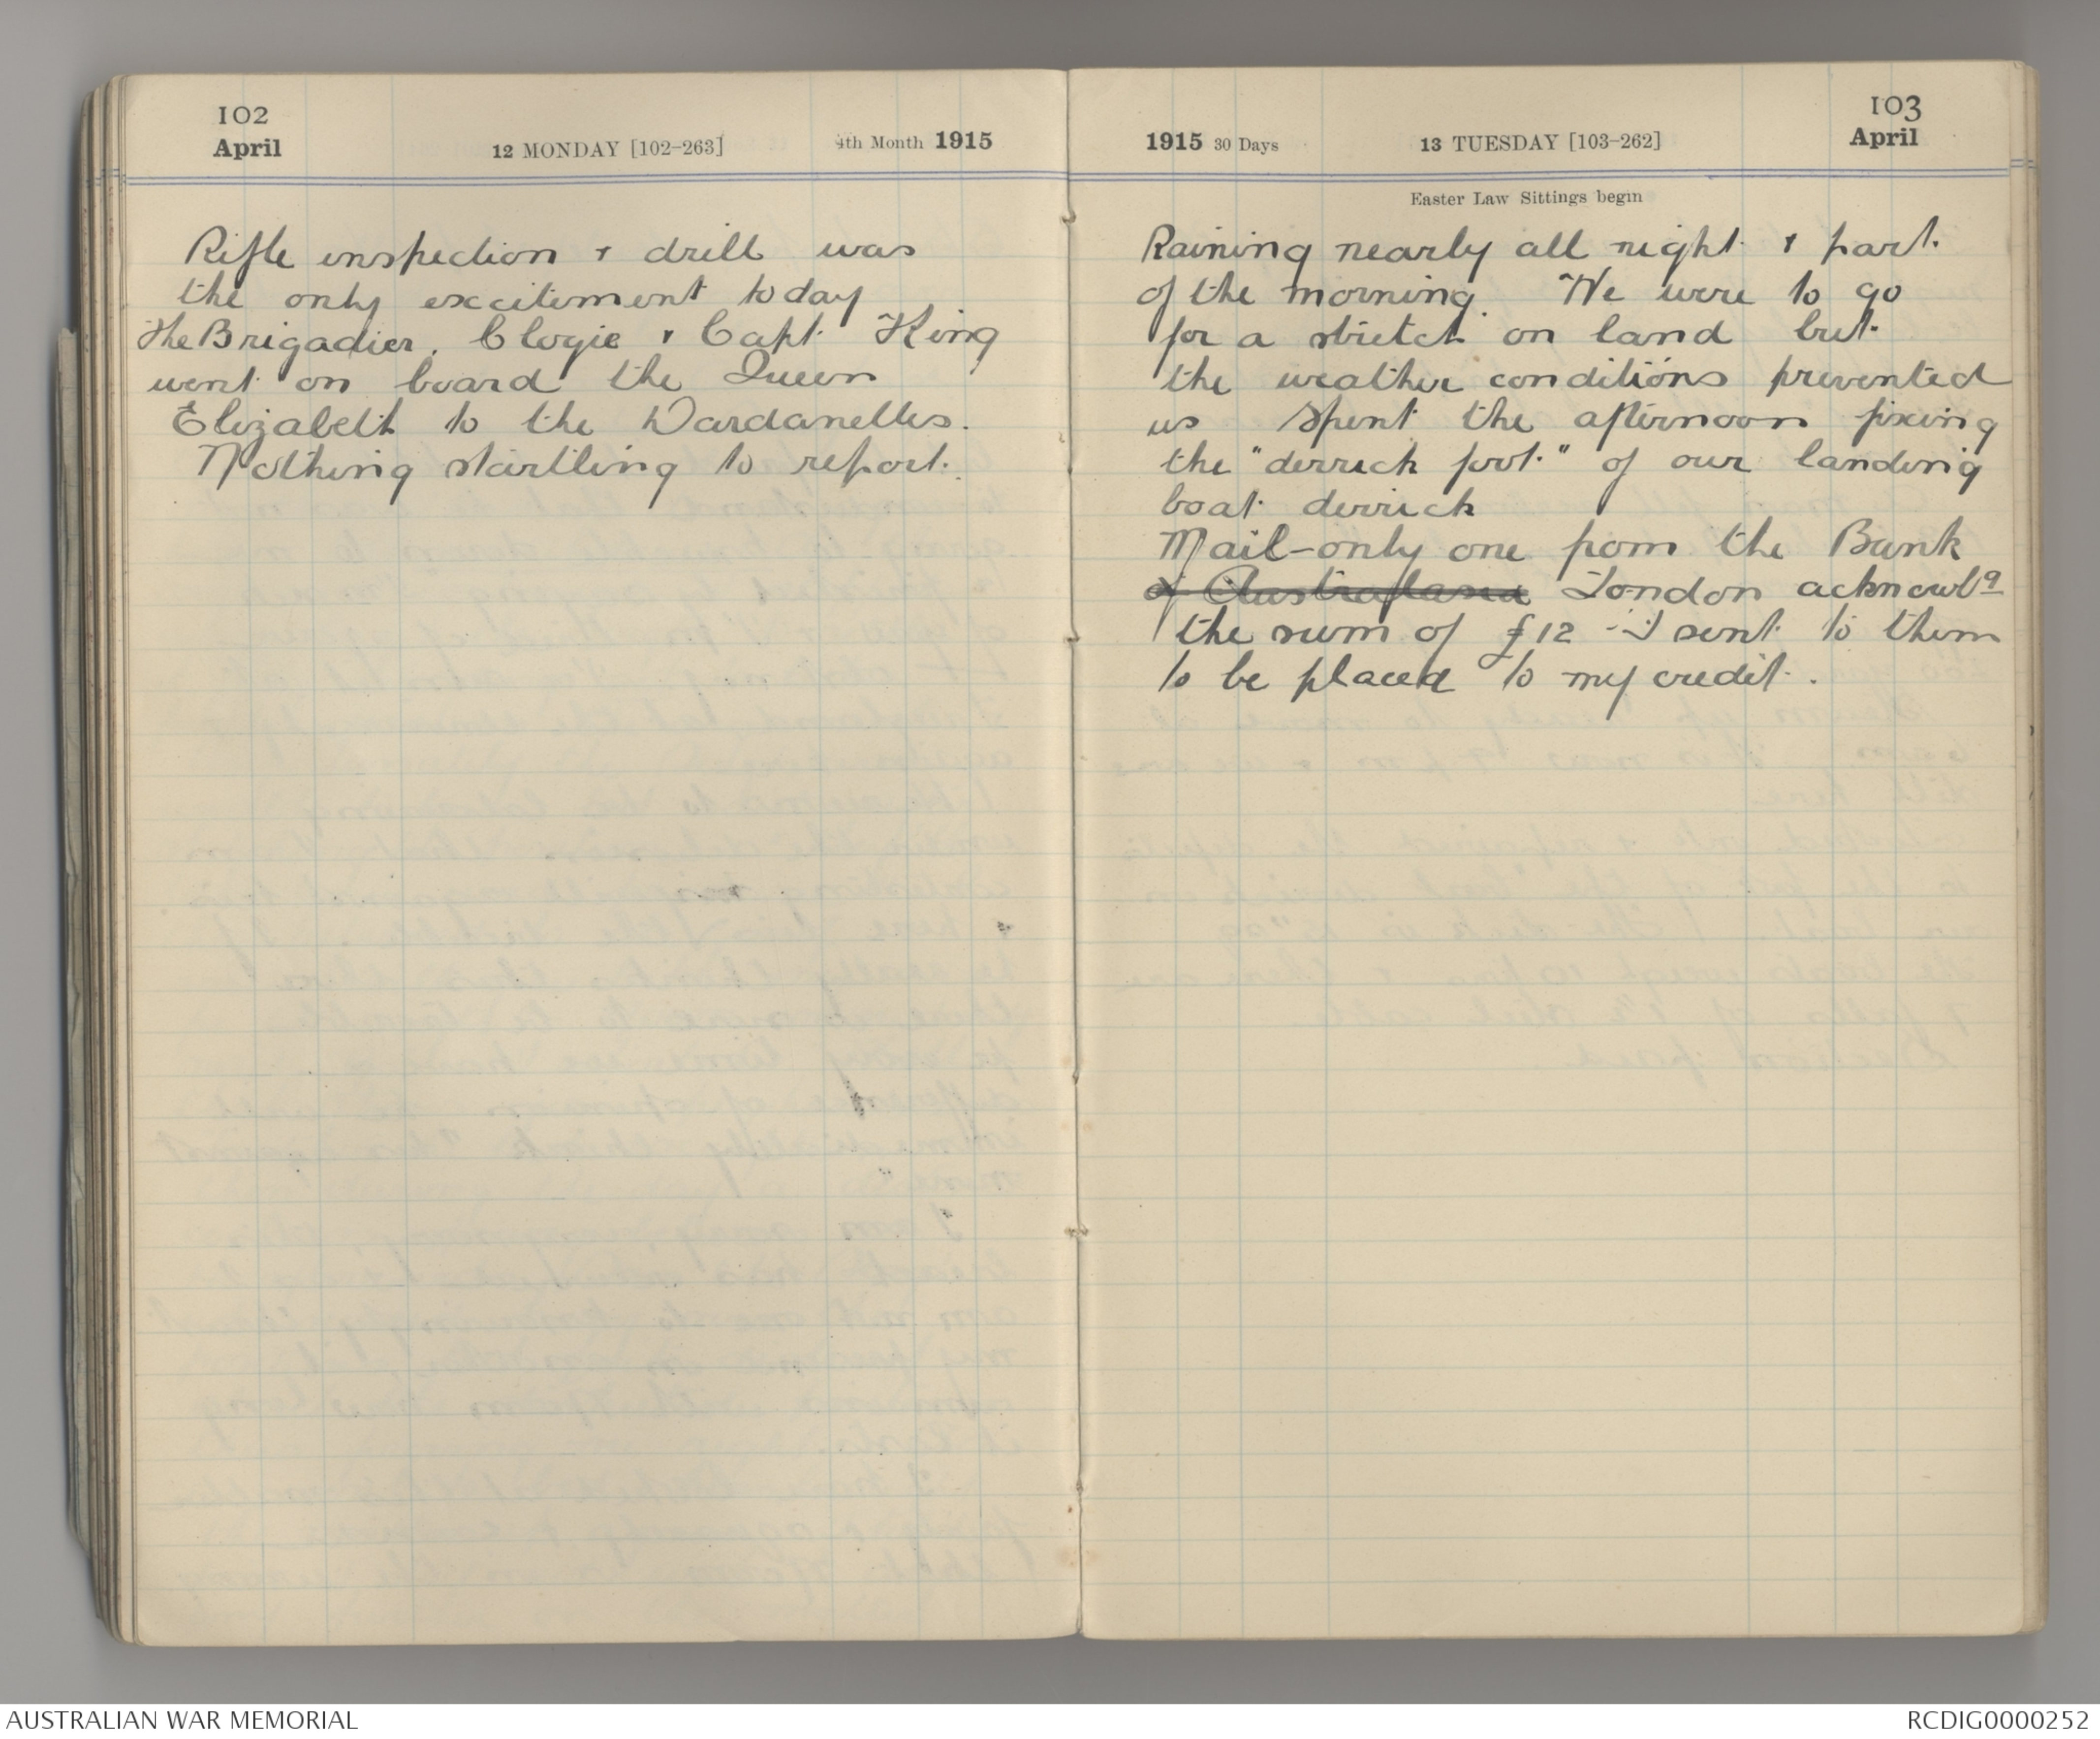 102
April
12 MONDAY [102-263]
4th Month 1915
Rifle inspection & drill was
the only excitement today
The Brigadier, Clogie & Capt. King
went on board the Queen
Elizabeth to the Dardanelles.
Nothing startling to report.
103
1915 30 Days
13 TUESDAY [103-262]
April
Easter Law Sittings begin
Raining nearly all night & part
of the morning. We were to go
for a stretch on land but
the weather conditions prevented
us Spent the afternoon fixing
the "derrick foot" of our landing
boat derrick
Mail-only one from the Bank
of London acknowlg
the sum of £12 - I sent to them
to be placed to my credit.
AUSTRALIAN WAR MEMORIAL
RCDIG0000252